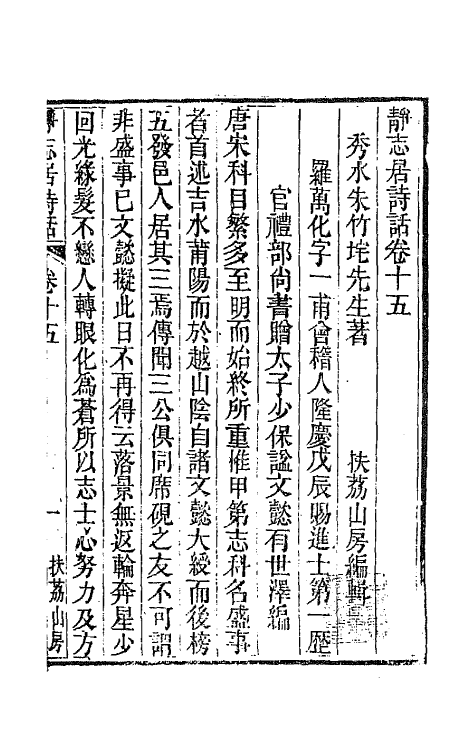 靜志居詩話卷十五
秀水朱竹垞先生著 扶荔山房編輯
羅萬化字一甫會稽人隆慶戊辰賜進士第一歷
官禮部尚書贈太子少保謚文懿有世澤編
唐宋科目繁多至明而始終所重惟甲第志科名盛事
者首述吉水莆陽而於越山陰自諸文懿大綬而後榜
五發邑人居其三焉傳聞三公俱同席硯之友不可謂
非盛事已文懿擬此日不再得云落景無返輪奔星少
回光綠髮不戀人轉眼化為蒼所以志士心努力及方
靜志居詩話 卷十五 一 扶荔山房